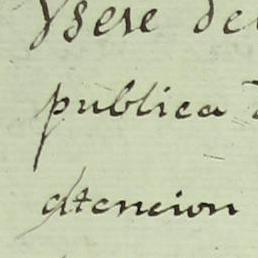 Ysese de
publica
atencion